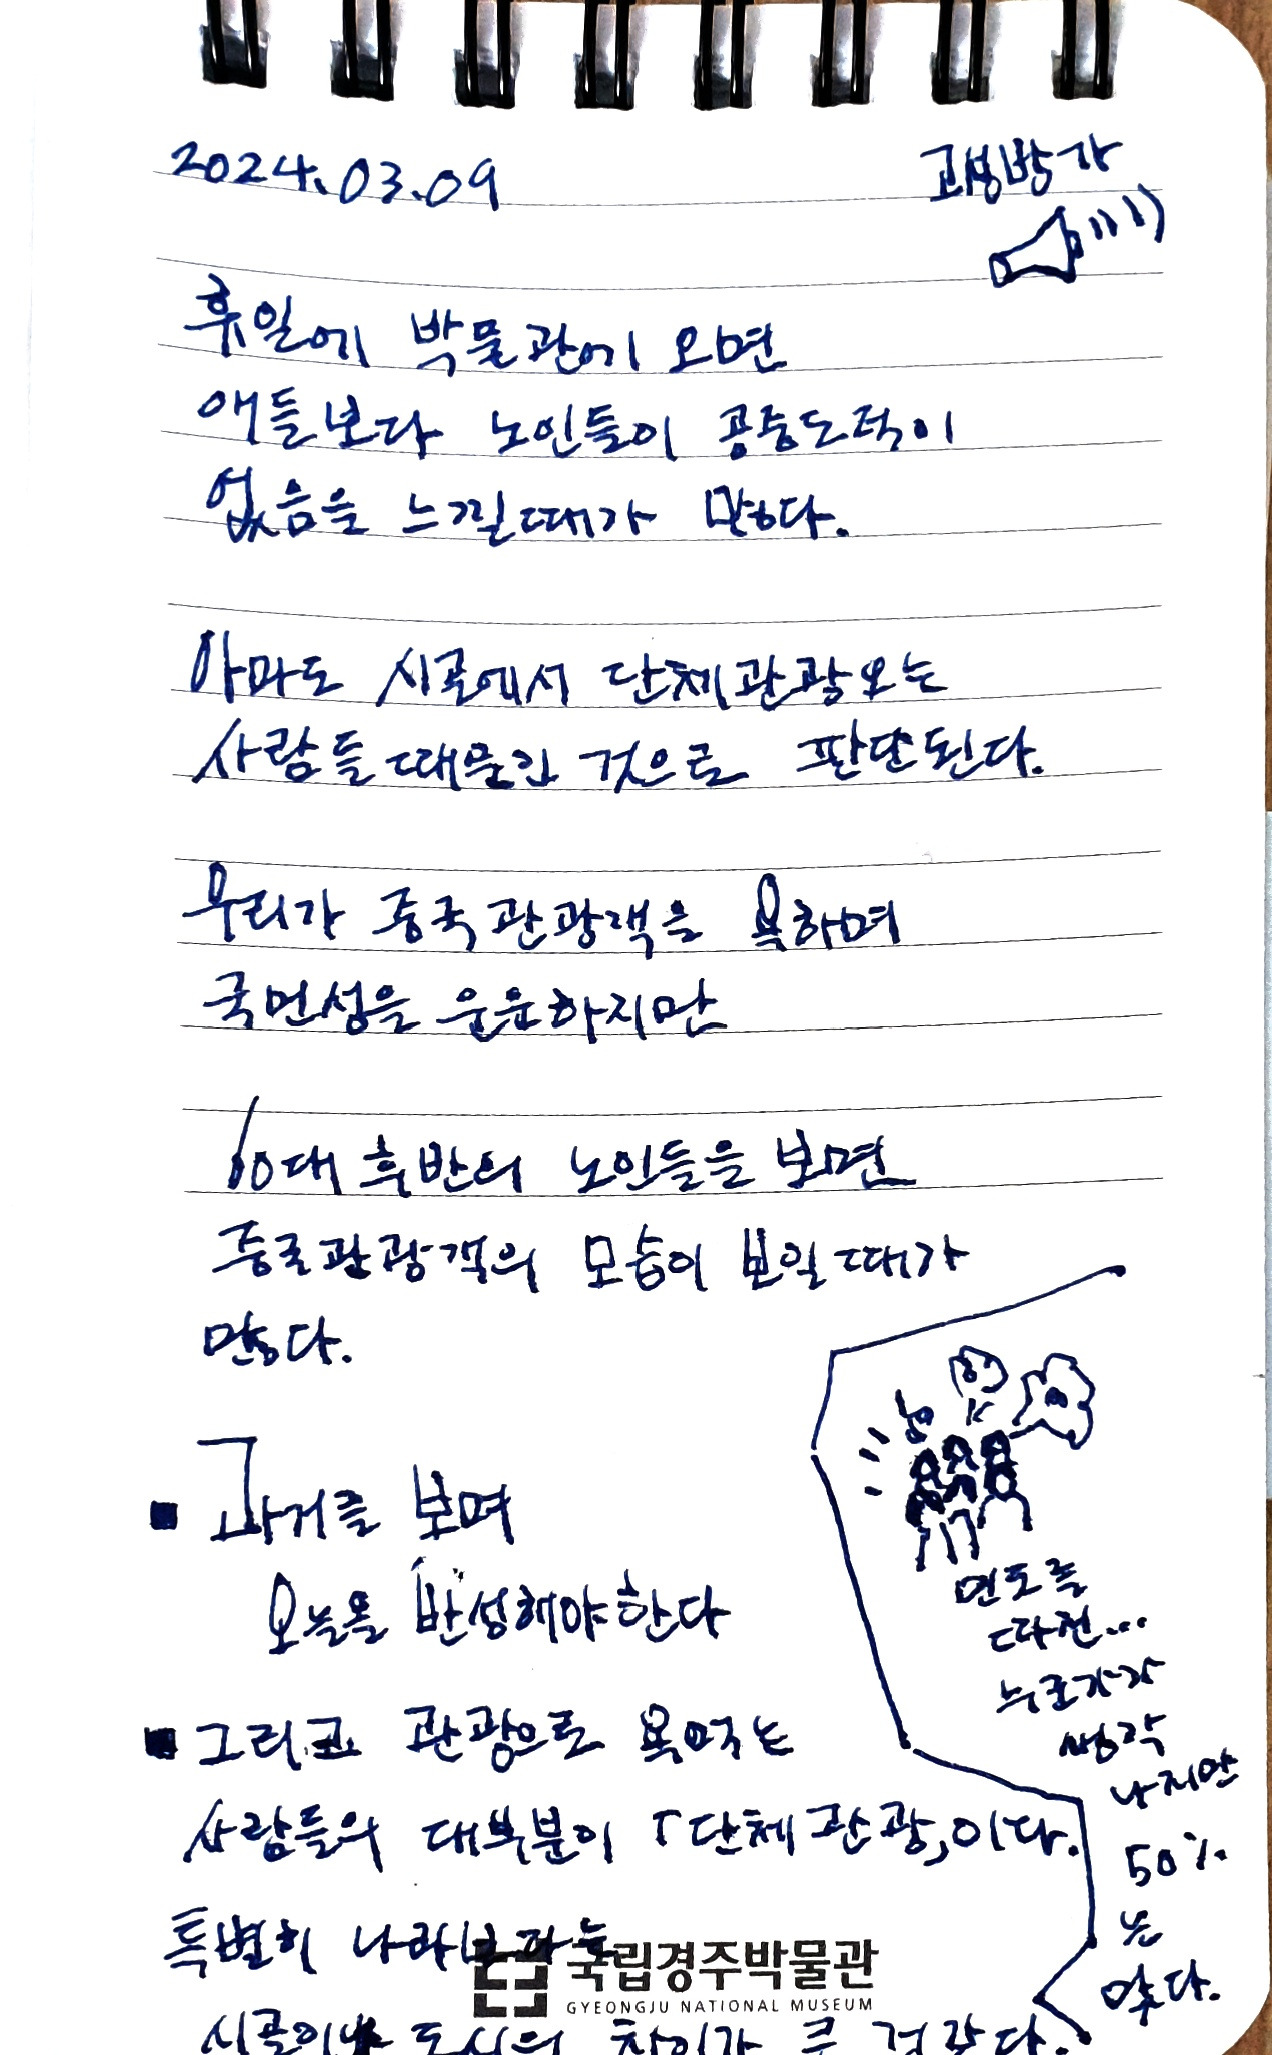 2024.03.09
고성방가
휴일에 박물관에 오면
애들보다 노인들이 공중도덕이
없음을 느낄때가 많다.
아마도 시골에서 단체관광오는
사람들때문인 것으로 판단된다.
우리가 중국관광객을 욕하며
국민성을 운운하지만
60대 후반의 노인들을 보면
중국관광객의 모습이 보일때가
많다.
■ 과거를 보며
오늘을 반성해야한다
■ 그리고 관광으로 욕먹는
사람들의 대부분이 「단체관광」이다.
특별히 나라보다는
시골이냐 도시의 차이가 큰 것 같다.
면도를
따진...
누군가가
생각
나지만
50%
는
맞다.
국립경주박물관
GYEONGJU NATIONAL MUSEUM